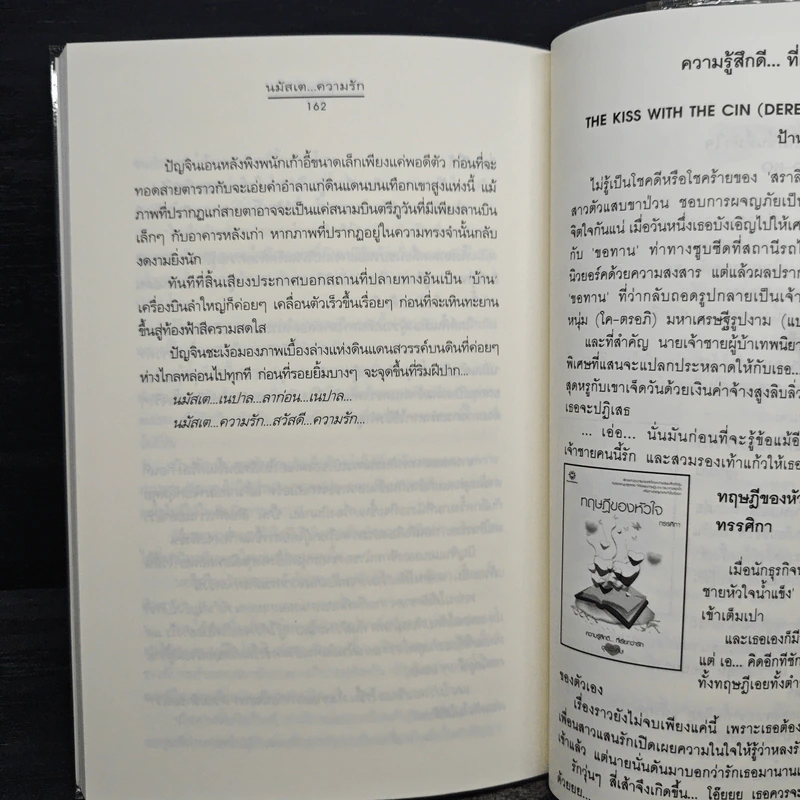 นมัสเต...ความรัก
162
ปัญจินเอนหลังพิงพนักเก้าอี้ขนาดเล็กเพียงแค่พอดีตัว ก่อนที่จะ
ทอดสายตาราวกับจะเอ่ยคำอำลาแก่ดินแดนบนเทือกเขาสูงแห่งนี้ แม้
ภาพที่ปรากฏแก่สายตาอาจจะเป็นแค่สนามบินตรีภูวันที่มีเพียงลานบิน
เล็กๆ กับอาคารหลังเก่า หากภาพที่ปรากฏอยู่ในความทรงจำนั้นกลับ
งดงามยิ่งนัก
ทันทีที่สิ้นเสียงประกาศบอกสถานที่ปลายทางอันเป็น 'บ้าน'
เครื่องบินลำใหญ่ก็ค่อยๆ เคลื่อนตัวเร็วขึ้นเรื่อยๆ ก่อนที่จะเหินทะยาน
ขึ้นสู่ท้องฟ้าสีครามสดใส
ปัญจินชะเง้อมองภาพเบื้องล่างแห่งดินแดนสวรรค์บนดินที่ค่อยๆ
ห่างไกลหล่อนไปทุกที ก่อนที่รอยยิ้มบางๆ จะจุดขึ้นที่ริมฝีปาก...
นมัสเต...เนปาล...ลาก่อน...เนปาล...
นมัสเต...ความรัก...สวัสดี...ความรัก...
ความรู้สึกดี... ที่
THE KISS WITH THE CIN (DERE
ป้าน
ไม่รู้เป็นโชคดีหรือโชคร้ายของ 'สราลี
สาวตัวแสบขาป่วน ชอบการผจญภัยเป็น
จิตใจกันแน่ เมื่อวันหนึ่งเธอบังเอิญไปให้เศ
กับ 'ขอทาน' ท่าทางซูบซีดที่สถานีรถไ
นิวยอร์คด้วยความสงสาร แต่แล้วผลปราก
'ขอทาน' ที่ว่ากลับถอดรูปกลายเป็นเจ้า
หนุ่ม (โค-ตรอภิ) มหาเศรษฐีรูปงาม (แบ
และที่สำคัญ นายเจ้าชายผู้บ้าเทพนิยา
พิเศษที่แสนจะแปลกประหลาดให้กับเธอ...
สุดหรูกับเขาเจ็ดวันด้วยเงินค่าจ้างสูงลิบลิ่ว
เธอจะปฏิเสธ
... เอ่อ... นั่นมันก่อนที่จะรู้ข้อแม้อี
เจ้าชายคนนี้รัก และสวมรองเท้าแก้วให้เธอ
ทฤษฎีของหัวใจ
ทรรศิกา
ความรู้สึกดี... ที่เรียกว่ารัก
ทฤษฎีของหัว
ทรรศิกา
เมื่อนักธุรกิจห
ชายหัวใจน้ำแข็ง'
เข้าเต็มเปา
และเธอเองก็มี
แต่ เอ... คิดอีกทีชัก
ทั้งทฤษฎีเอยทั้งตำ
ของตัวเอง
เรื่องราวยังไม่จบเพียงแค่นี้ เพราะเธอต้อง
เพื่อนสาวแสนรักเปิดเผยความในใจให้รู้ว่าหลงรั
เจ้าแล้ว แต่นายนั่นดันมาบอกว่ารักเธอมานานแ
รักวุ่นๆ สี่เส้าจึงเกิดขึ้น... โอ๊ยยย เธอควรจะ
ด้วยยย...